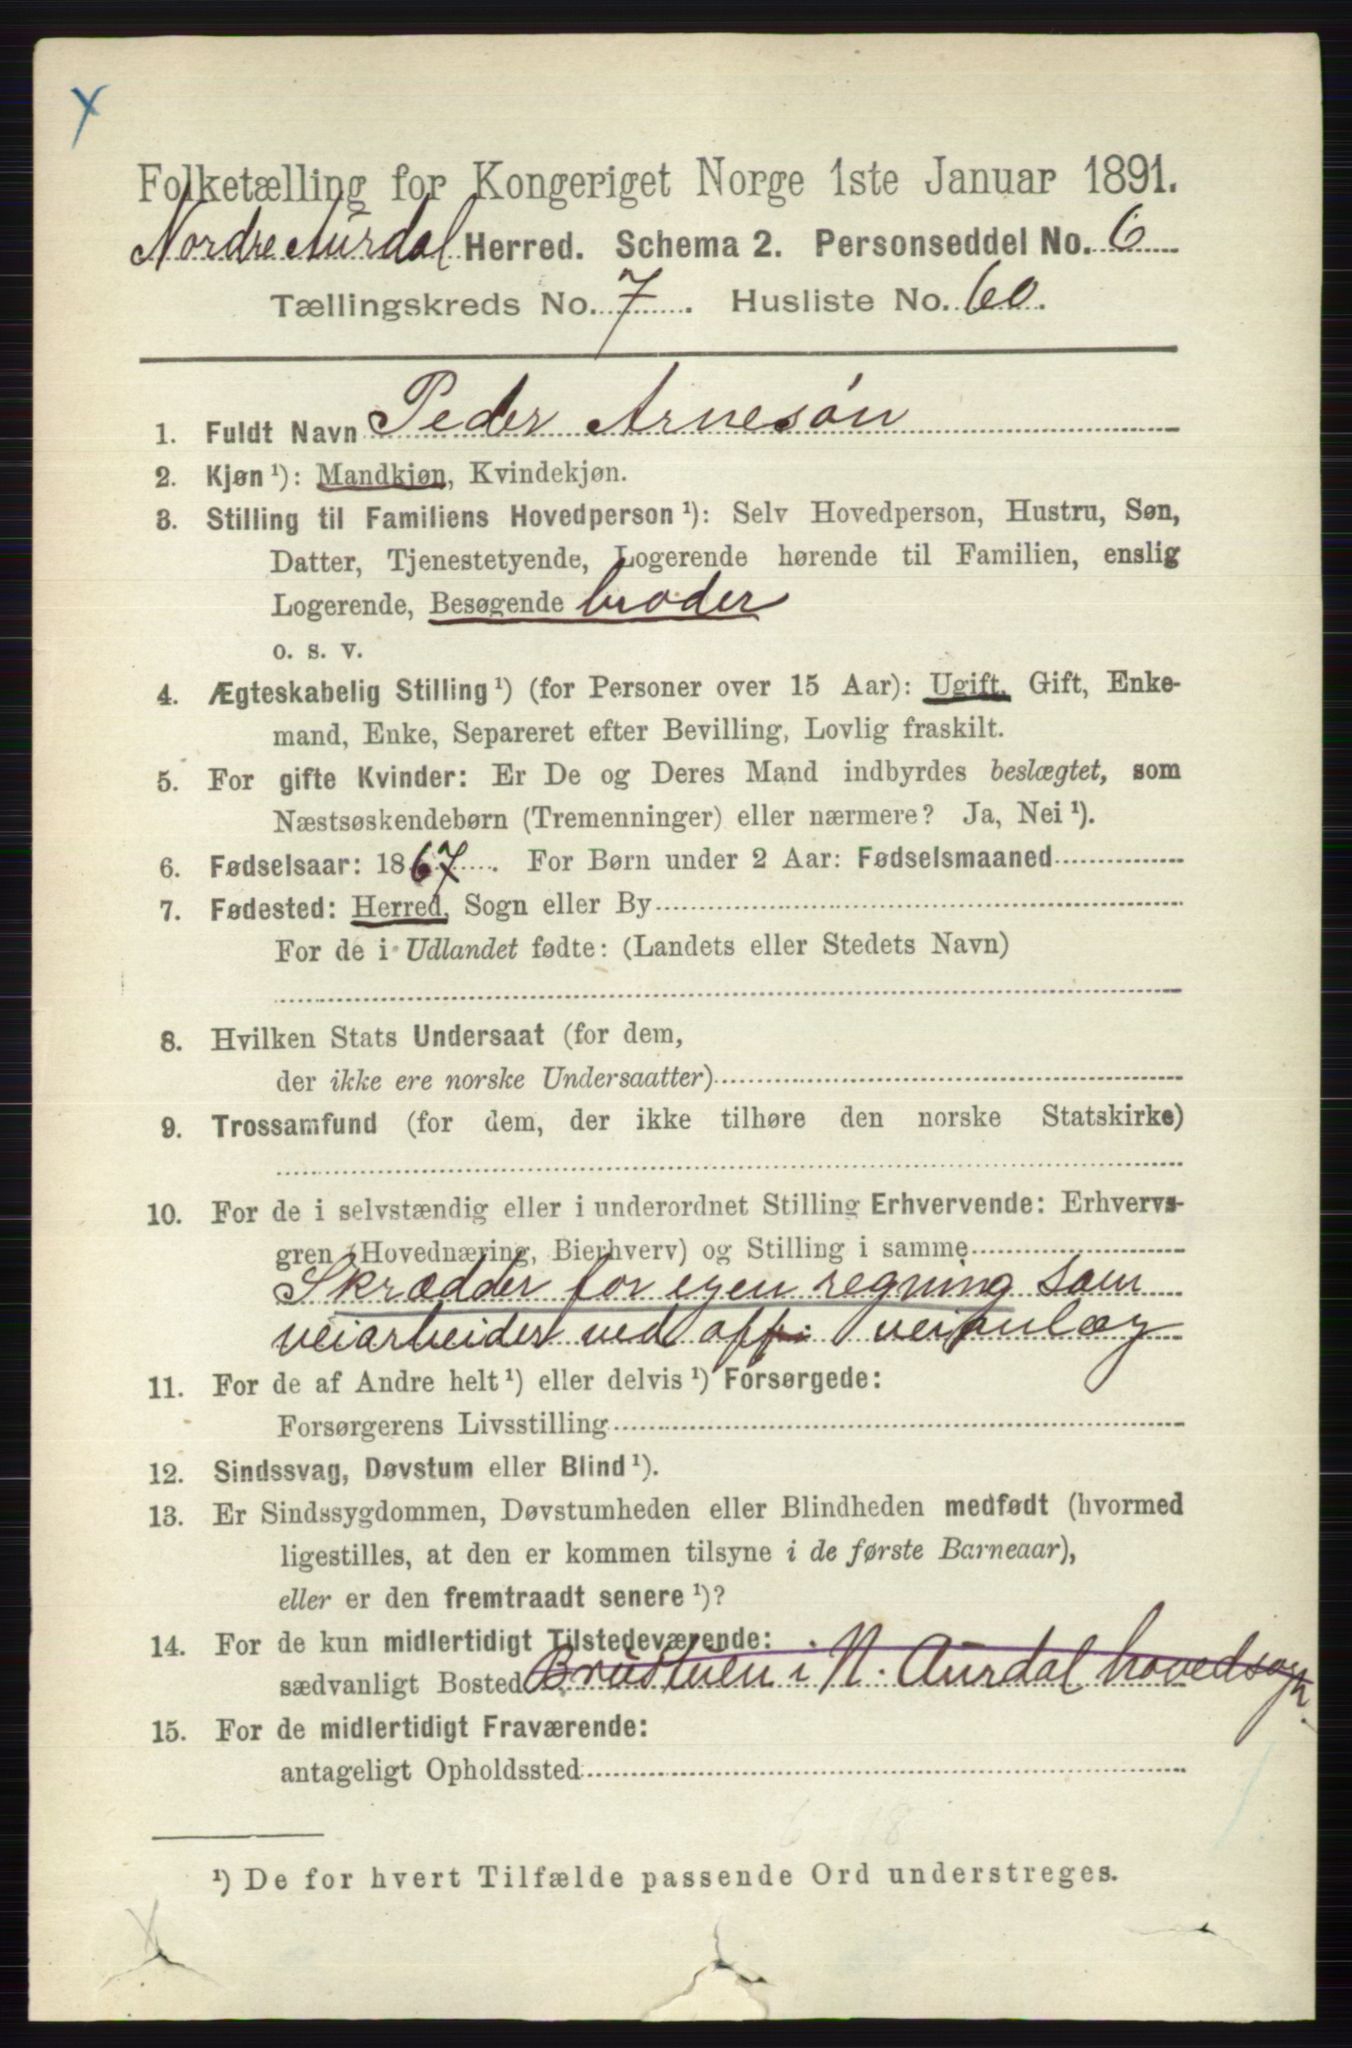 Folketælling for Kongeriget Norge 1ste Januar 1891.
Nordre Aurdal Herred. Schema 2. Personseddel No. 6
Tællingskreds No. 7. Husliste No. 60.
1. Fuldt Navn Peder Arnesøn
2. Kjøn ¹): Mandkjøn, Kvindekjøn.
3. Stilling til Familiens Hovedperson ¹): Selv Hovedperson, Hustru, Søn,
Datter, Tjenestetyende, Logerende hørende til Familien, enslig
Logerende, Besøgende broder
o. s. v.
4. Ægteskabelig Stilling ¹) (for Personer over 15 Aar): Ugift, Gift, Enke-
mand, Enke, Separeret efter Bevilling, Lovlig fraskilt.
5. For gifte Kvinder: Er De og Deres Mand indbyrdes beslægtet, som
Næstsøskendebørn (Tremenninger) eller nærmere? Ja, Nei ¹).
6. Fødselsaar: 1867. For Børn under 2 Aar: Fødselsmaaned
7. Fødested: Herred, Sogn eller By
For de i Udlandet fødte: (Landets eller Stedets Navn)
8. Hvilken Stats Undersaat (for dem,
der ikke ere norske Undersaatter)
9. Trossamfund (for dem, der ikke tilhøre den norske Statskirke)
10. For de i selvstændig eller i underordnet Stilling Erhvervende: Erhvervs-
gren (Hovednæring, Bierhverv) og Stilling i samme
Skrædder for egen regning som
veiarbeider ved off: veianlæg
11. For de af Andre helt ¹) eller delvis ¹) Forsørgede:
Forsørgerens Livsstilling
12. Sindssvag, Døvstum eller Blind ¹).
13. Er Sindssygdommen, Døvstumheden eller Blindheden medfødt (hvormed
ligestilles, at den er kommen tilsyne i de første Barneaar),
eller er den fremtraadt senere ¹)?
14. For de kun midlertidigt Tilstedeværende:
sædvanligt Bosted Brustuen i N. Aurdal hovedsogn.
15. For de midlertidigt Fraværende:
antageligt Opholdssted
6 18
¹) De for hvert Tilfælde passende Ord understreges.